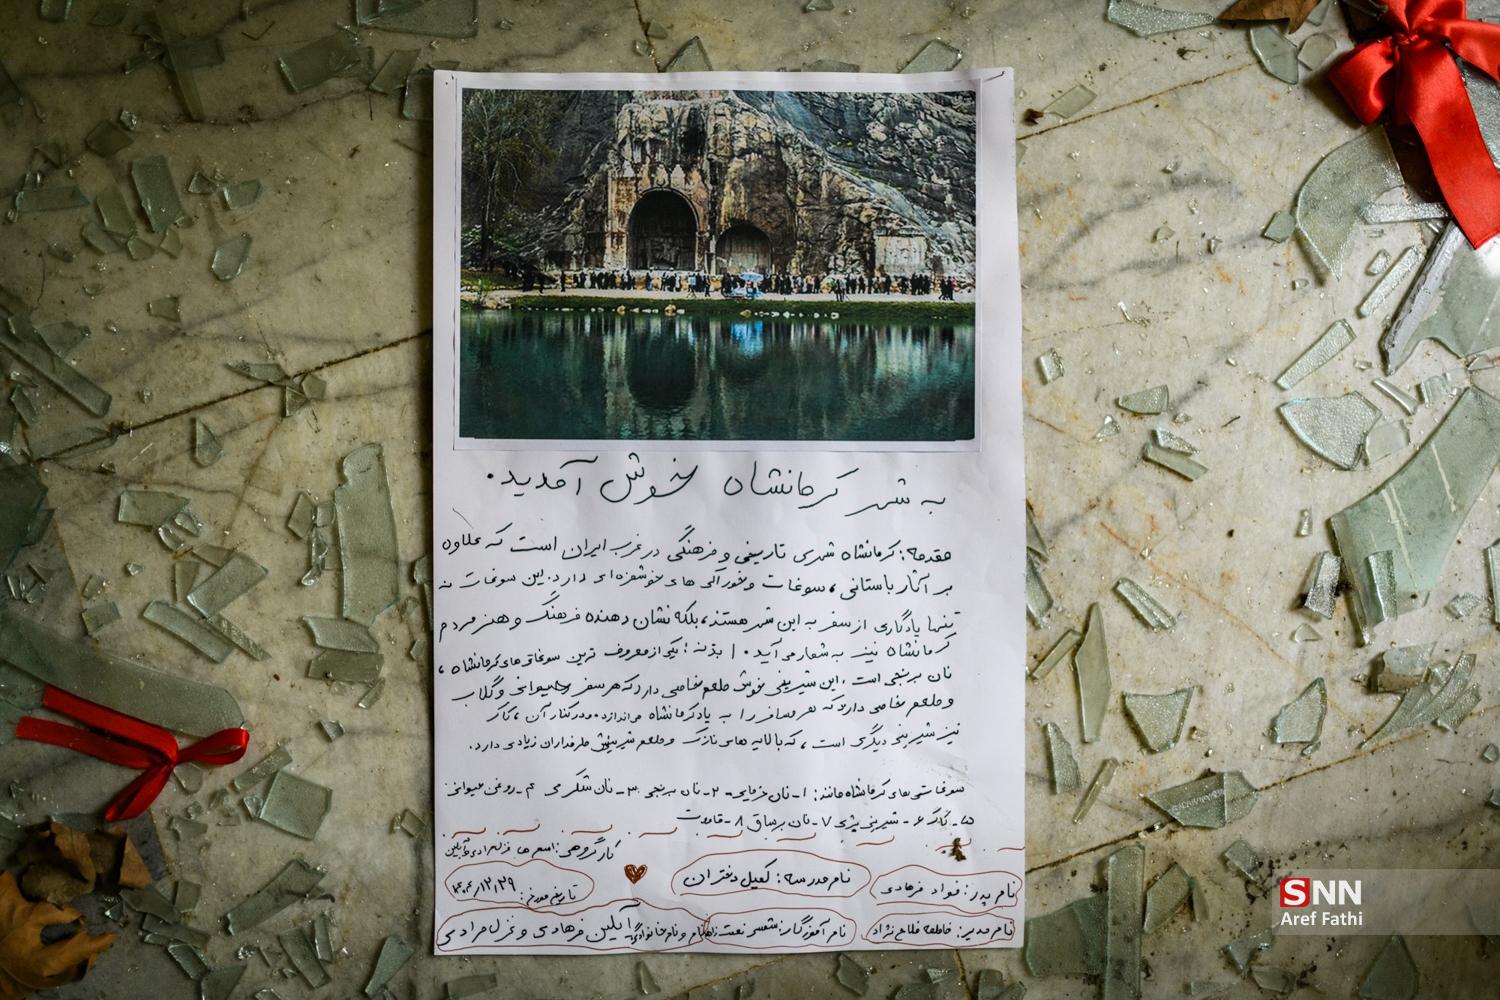 به شهر کرمانشاه خوش آمدید.
مقدمه: کرمانشاه شهری تاریخی و فرهنگی در غرب ایران است که علاوه
بر آثار باستانی، سوغات و خوراکی های خوشمزه ای دارد. این سوغات نه
تنها یادگاری از سفر به این شهر هستند، بلکه نشان دهنده فرهنگ و هنر مردم
کرمانشاه نیز به شمار می آید. | بدنه: یکی از معروف ترین سوغاتی های کرمانشاه،
نان برنجی است. این شیرینی خوش طعم خاصی دارد که هر سفر حیوانی و گلاب
و طعم خاصی دارد که هر مسافر را به یاد کرمانشاه می اندازد. در کنار آن، کاک
نیز شیرینی دیگری است، که با لایه های نازک و طعم شیرینش طرفداران زیادی دارد.
سوغاتی های کرمانشاه مانند: ۱- نان خرمایی- ۲- نان برنجی ۳- نان شکری ۴- روغن حیوانی
۵- کاک ۶- شیرینی پژی ۷- نان برساق ۸-
کار گروهی: اسم ها
نام پدر: فواد فرهادی
نام مدرسه: کمیل دختران
تاریخ مورخ: ۱۴۰۴/۱۲/۲۹
نام مدیر: فاطمه فلاح نژاد
نام آموزگار: شمسی نعت
نام و نام خانوادگی: آیلین فرهادی و غزل مرادی
SNN
Aref Fathi